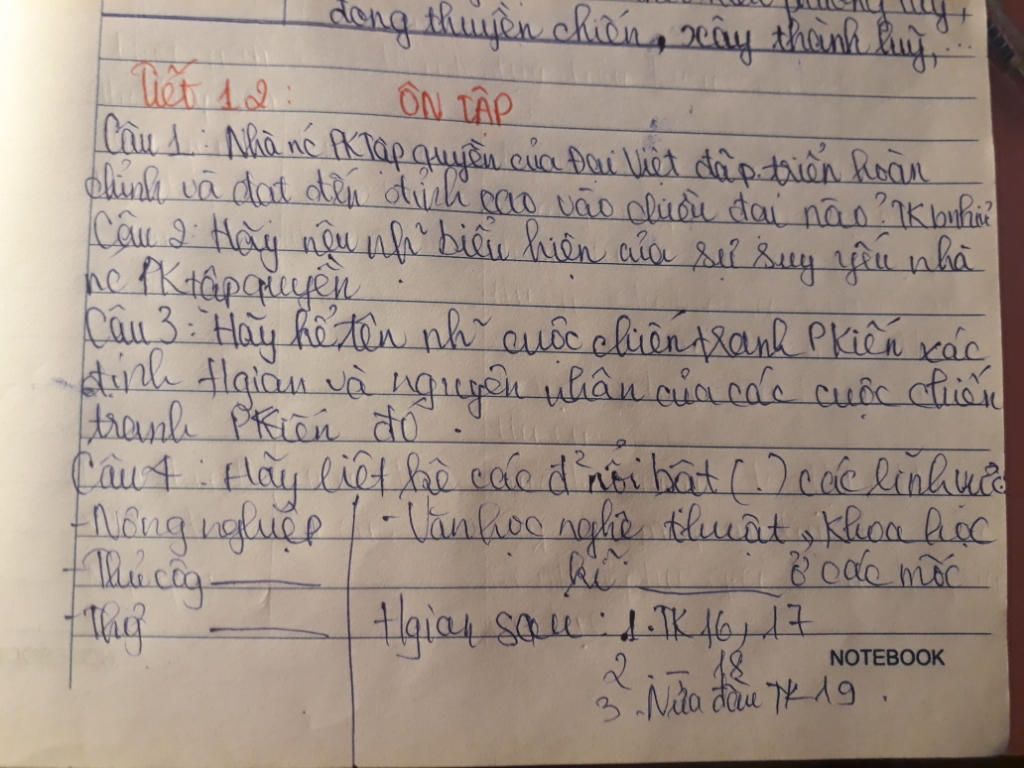 đong thuyền chiến, xây thành luỹ,...
Tiết 12: ÔN TẬP
Câu 1: Nhà nc PK Tập quyền của Đại Việt đầp triển hoàn
chỉnh và đạt đến đỉnh cao vào chiều đại nào? TK
Câu 2: Hãy nêu nh~ biểu hiện của sự suy yếu nhà
nc PK tập quyền.
Câu 3: Hãy kể tên nh~ cuộc chiến tranh PKiến xác
định tgian và nguyên nhân của các cuộc chiến
tranh PKiến đó.
Câu 4: Hãy liệt kê các đ² nổi bật (.) các lĩnh vực
- Nông nghiệp - Văn học nghệ thuật, khoa học
- Thủ côg —— kĩ —— ở các mốc
- Thg —— tgian sau: 1. TK 16, 17
2. — 18
3. Nửa đầu TK 19.
NOTEBOOK